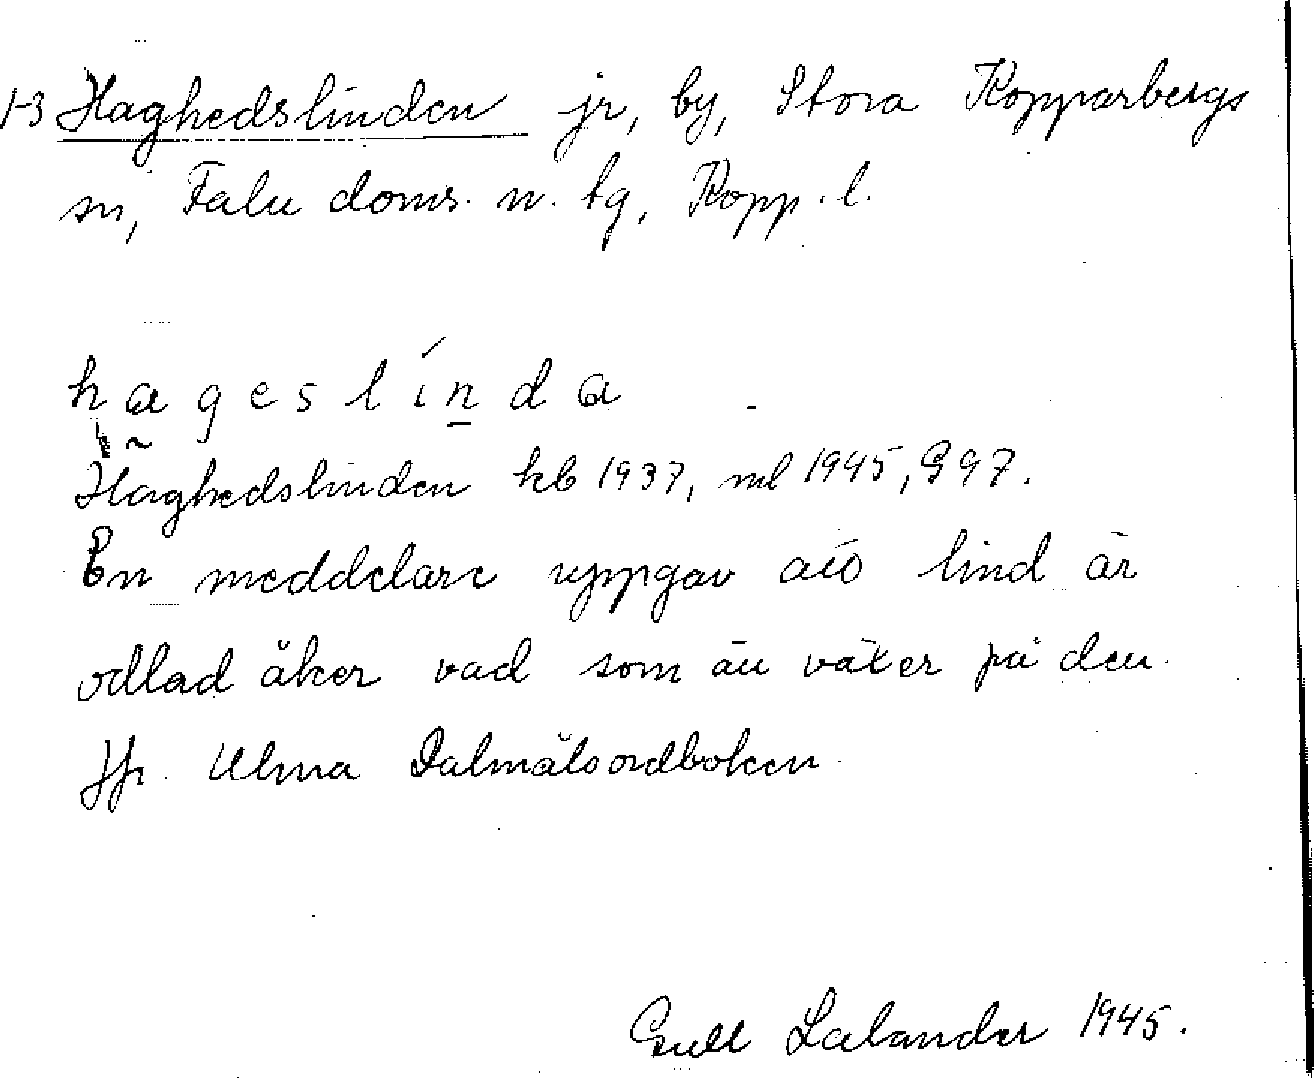 1-3 Haghedslinden jr, by, Stora Kopparbergs
sn, Falu doms. n. tg, Kopp. l.
hageslínda
Haghedslinden kb 1937, ml 1945, 997.
En meddelare uppgav att lind är
odlad åker vad som än växer på den.
Jfr. Ulma Dalmålsordboken.
Gull Lalander 1945.